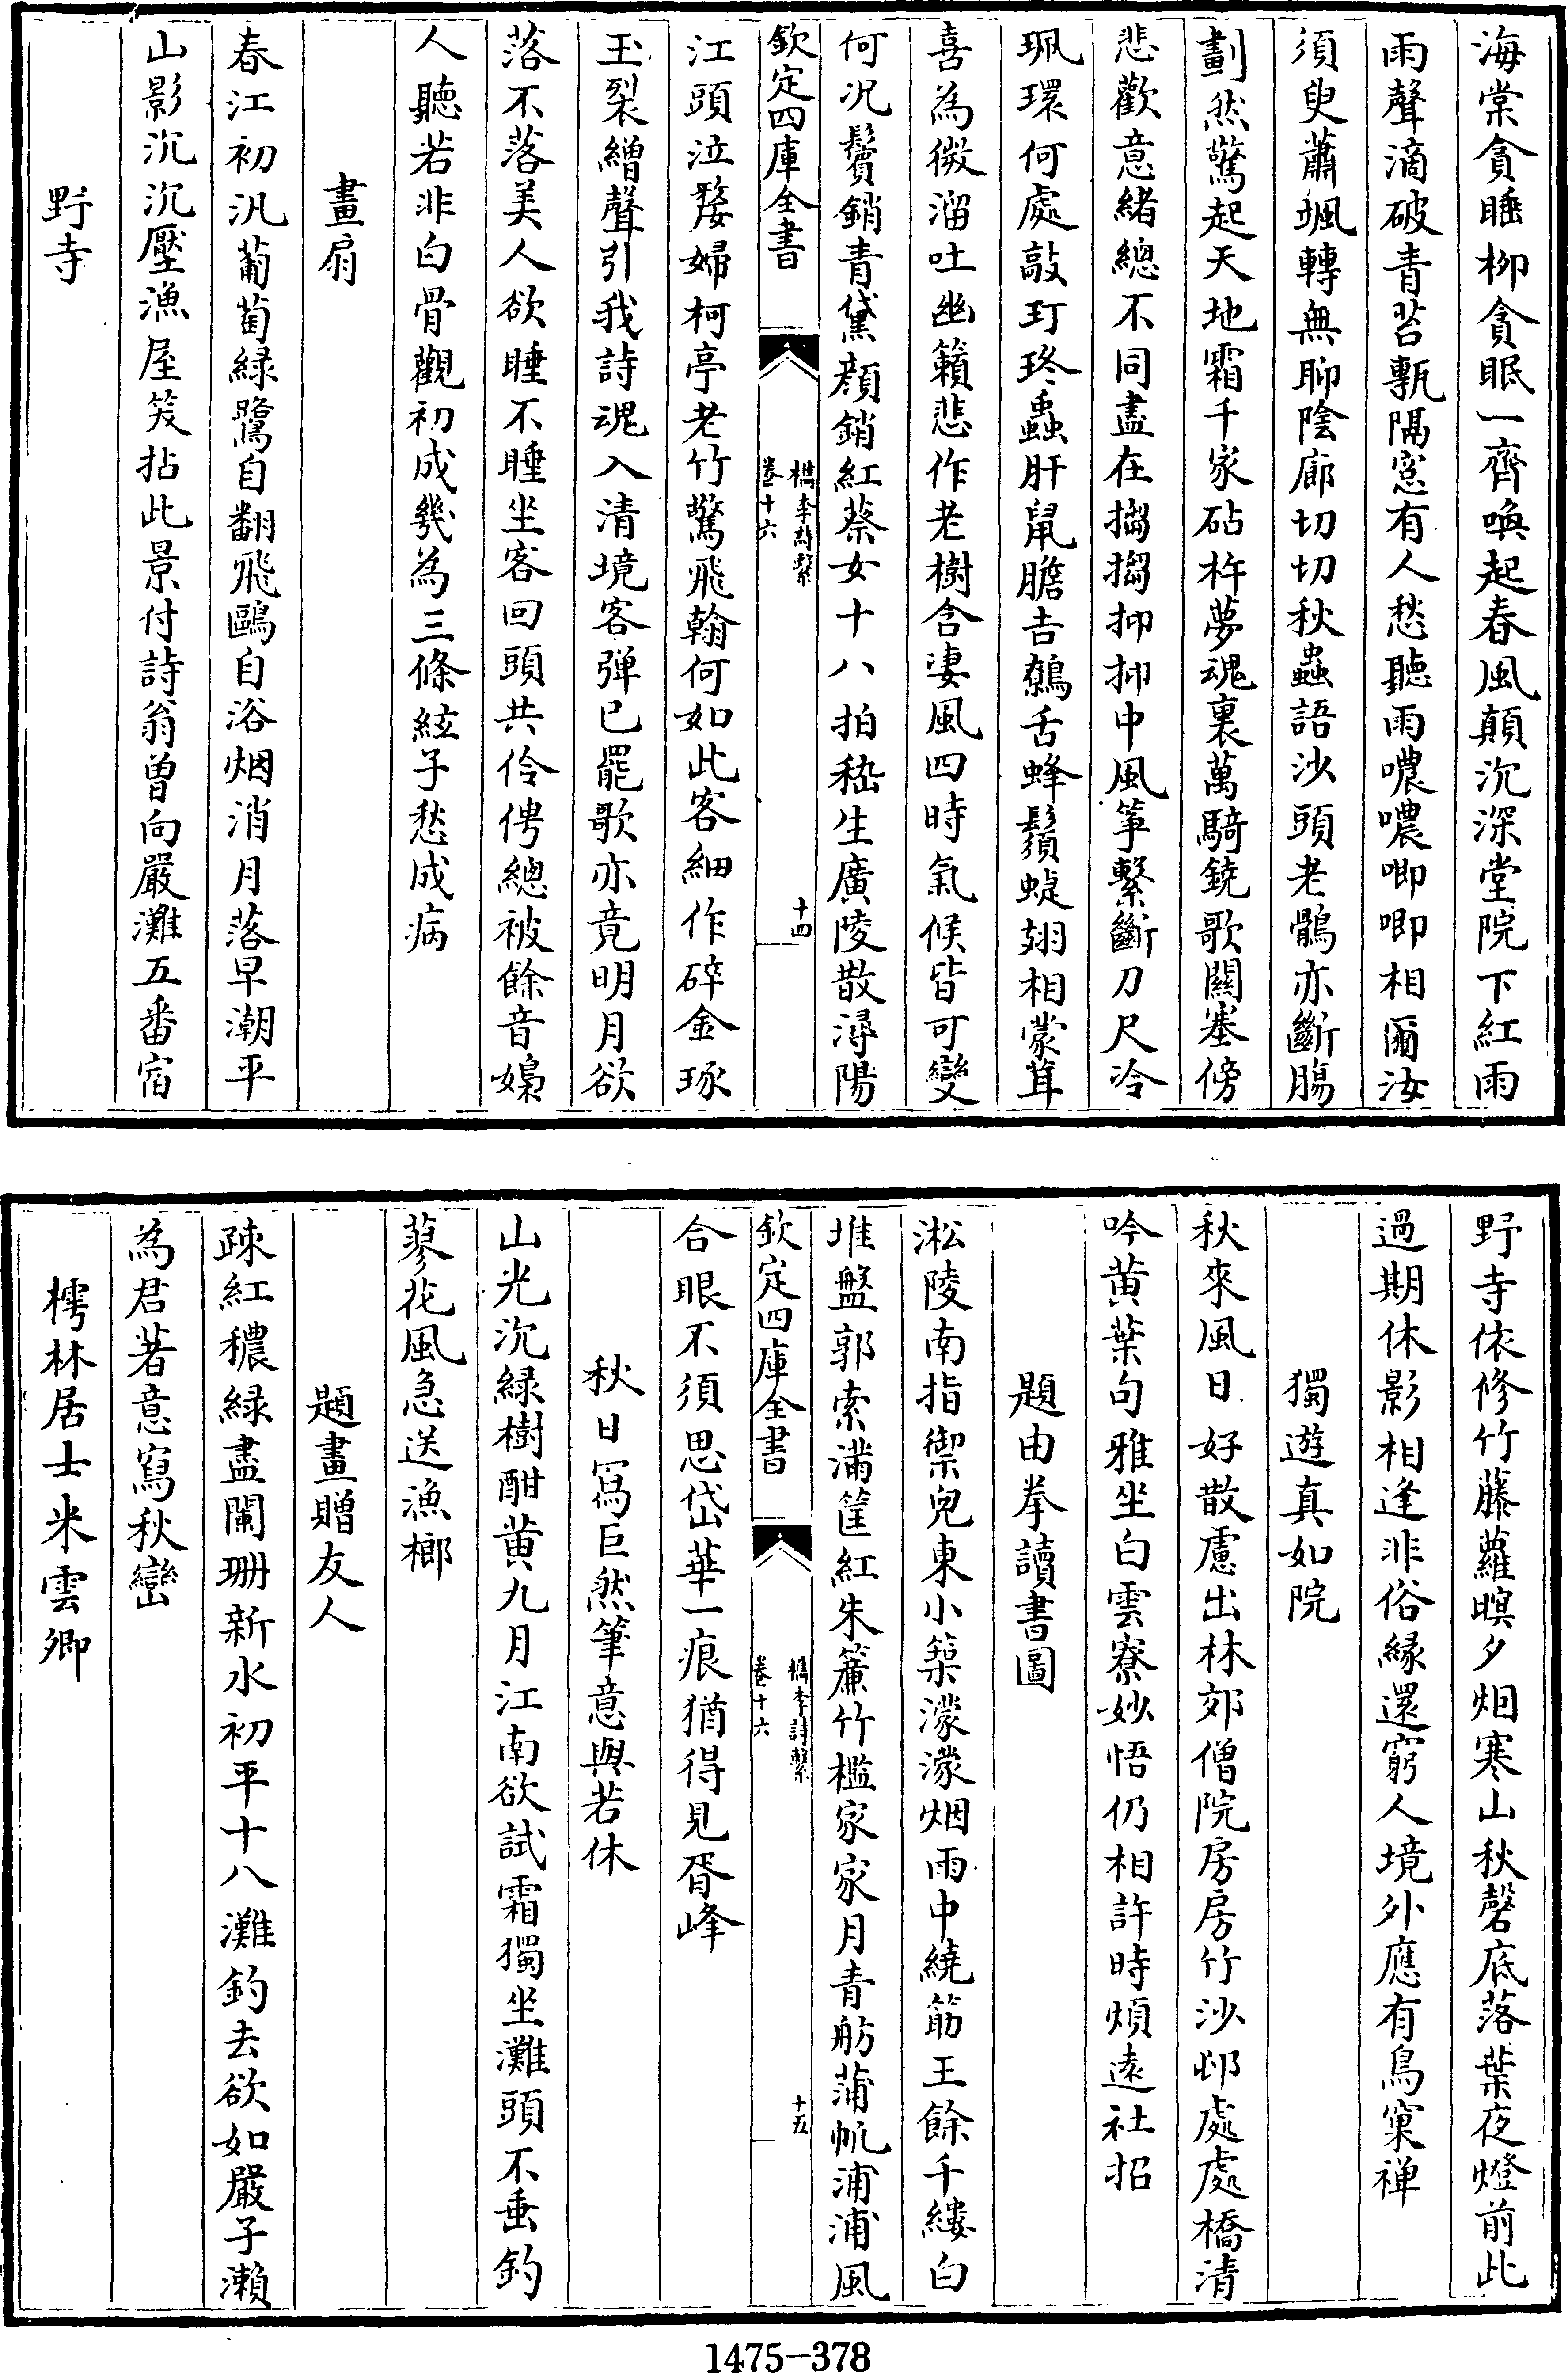 海棠貪睡柳貪眠一齊喚起春風顛沉深堂院下紅雨
雨聲滴破青苔甎隔窓有人愁聽雨噥噥唧唧相爾汝
須臾蕭颯轉無聊陰廊切切秋蟲語沙頭老鶻亦斷腸
劃然驚起天地霜千家砧杵夢魂裏萬騎鐃歌關塞傍
悲歡意緒總不同盡在搊搊抑抑中風箏繫斷刀尺冷
珮環何處敲玎玲蟲肝鼠膽吉鷯舌蜂鬚蜨翅相蒙茸
喜為微溜吐幽籟悲作老樹含淒風四時氣候皆可變
何況鬢銷青黛顏銷紅蔡女十八拍嵇生廣陵散潯陽
欽定四庫全書
檇李詩繫
卷十六
十四
江頭泣嫠婦柯亭老竹驚飛翰何如此客細作碎金琢
玉裂繒聲引我詩魂入清境客弾已罷歌亦竟明月欲
落不落美人欲睡不睡坐客回頭共伶俜總被餘音嫋
人聽若非白骨觀初成幾為三條絃子愁成病
畫扇
春江初汎葡萄緑鷺自翻飛鷗自浴烟消月落早潮平
山影沉沉壓漁屋笑拈此景付詩翁曽向嚴灘五番宿
野寺
野寺依修竹藤蘿暝夕烟寒山秋磬底落葉夜燈前此
過期休影相逢非俗緣還窮人境外應有鳥窠禅
獨遊真如院
秋來風日好散慮出林郊僧院房房竹沙邨處處橋清
吟黄葉句雅坐白雲寮妙悟仍相許時煩遠社招
題由拳讀書圖
淞陵南指禦兒東小築濛濛烟雨中繞筯王餘千縷白
堆盤郭索滿筐紅朱簾竹檻家家月青舫蒲帆浦浦風
欽定四庫全書
檇李詩繫
卷十六
十五
合眼不須思岱華一痕猶得見胥峰
秋日寫巨然筆意與若休
山光沉緑樹酣黄九月江南欲試霜獨坐灘頭不垂釣
蓼花風急送漁榔
題畫贈友人
疎紅穠緑盡闌珊新水初平十八灘釣去欲如嚴子瀨
為君著意寫秋巒
樗林居士米雲卿
1475-378